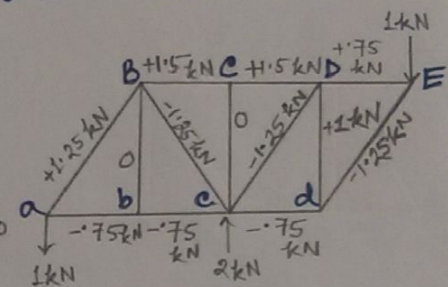 1kN
+.75 kN
B +1.5kN C +1.5kN D E
+1.25kN 0 -1.25kN 0 -1.25kN +1kN -1.25kN
a b c d
-.75kN -.75 kN -.75 kN
1kN 2kN